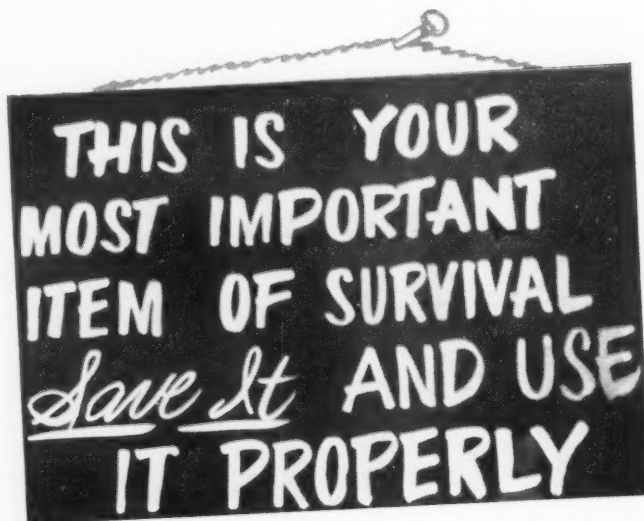 THIS IS YOUR
MOST IMPORTANT
ITEM OF SURVIVAL
Save It AND USE
IT PROPERLY